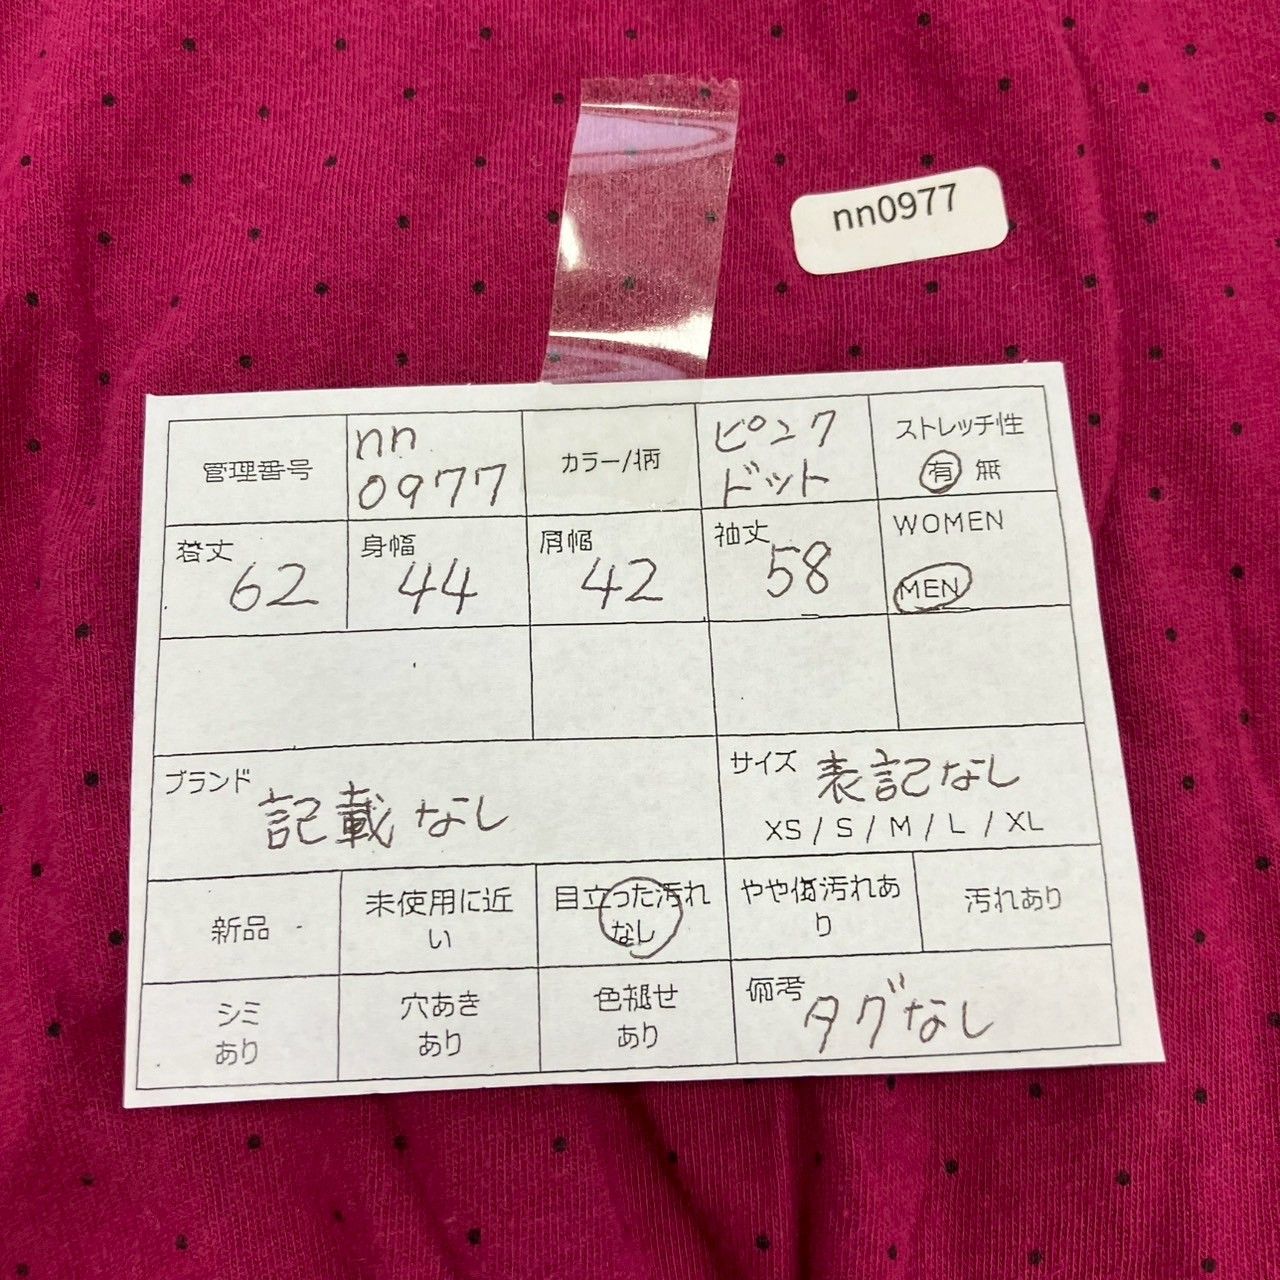 nn0977
管理番号
nn
0977
カラー/柄
ピンク
ドット
ストレッチ性
有 無
着丈
62
身幅
44
肩幅
42
袖丈
58
WOMEN
MEN
ブランド
記載なし
サイズ
表記なし
XS / S / M / L / XL
新品
未使用に近
い
目立った汚れ
なし
やや傷汚れあ
り
汚れあり
シミ
あり
穴あき
あり
色褪せ
あり
備考
タグなし